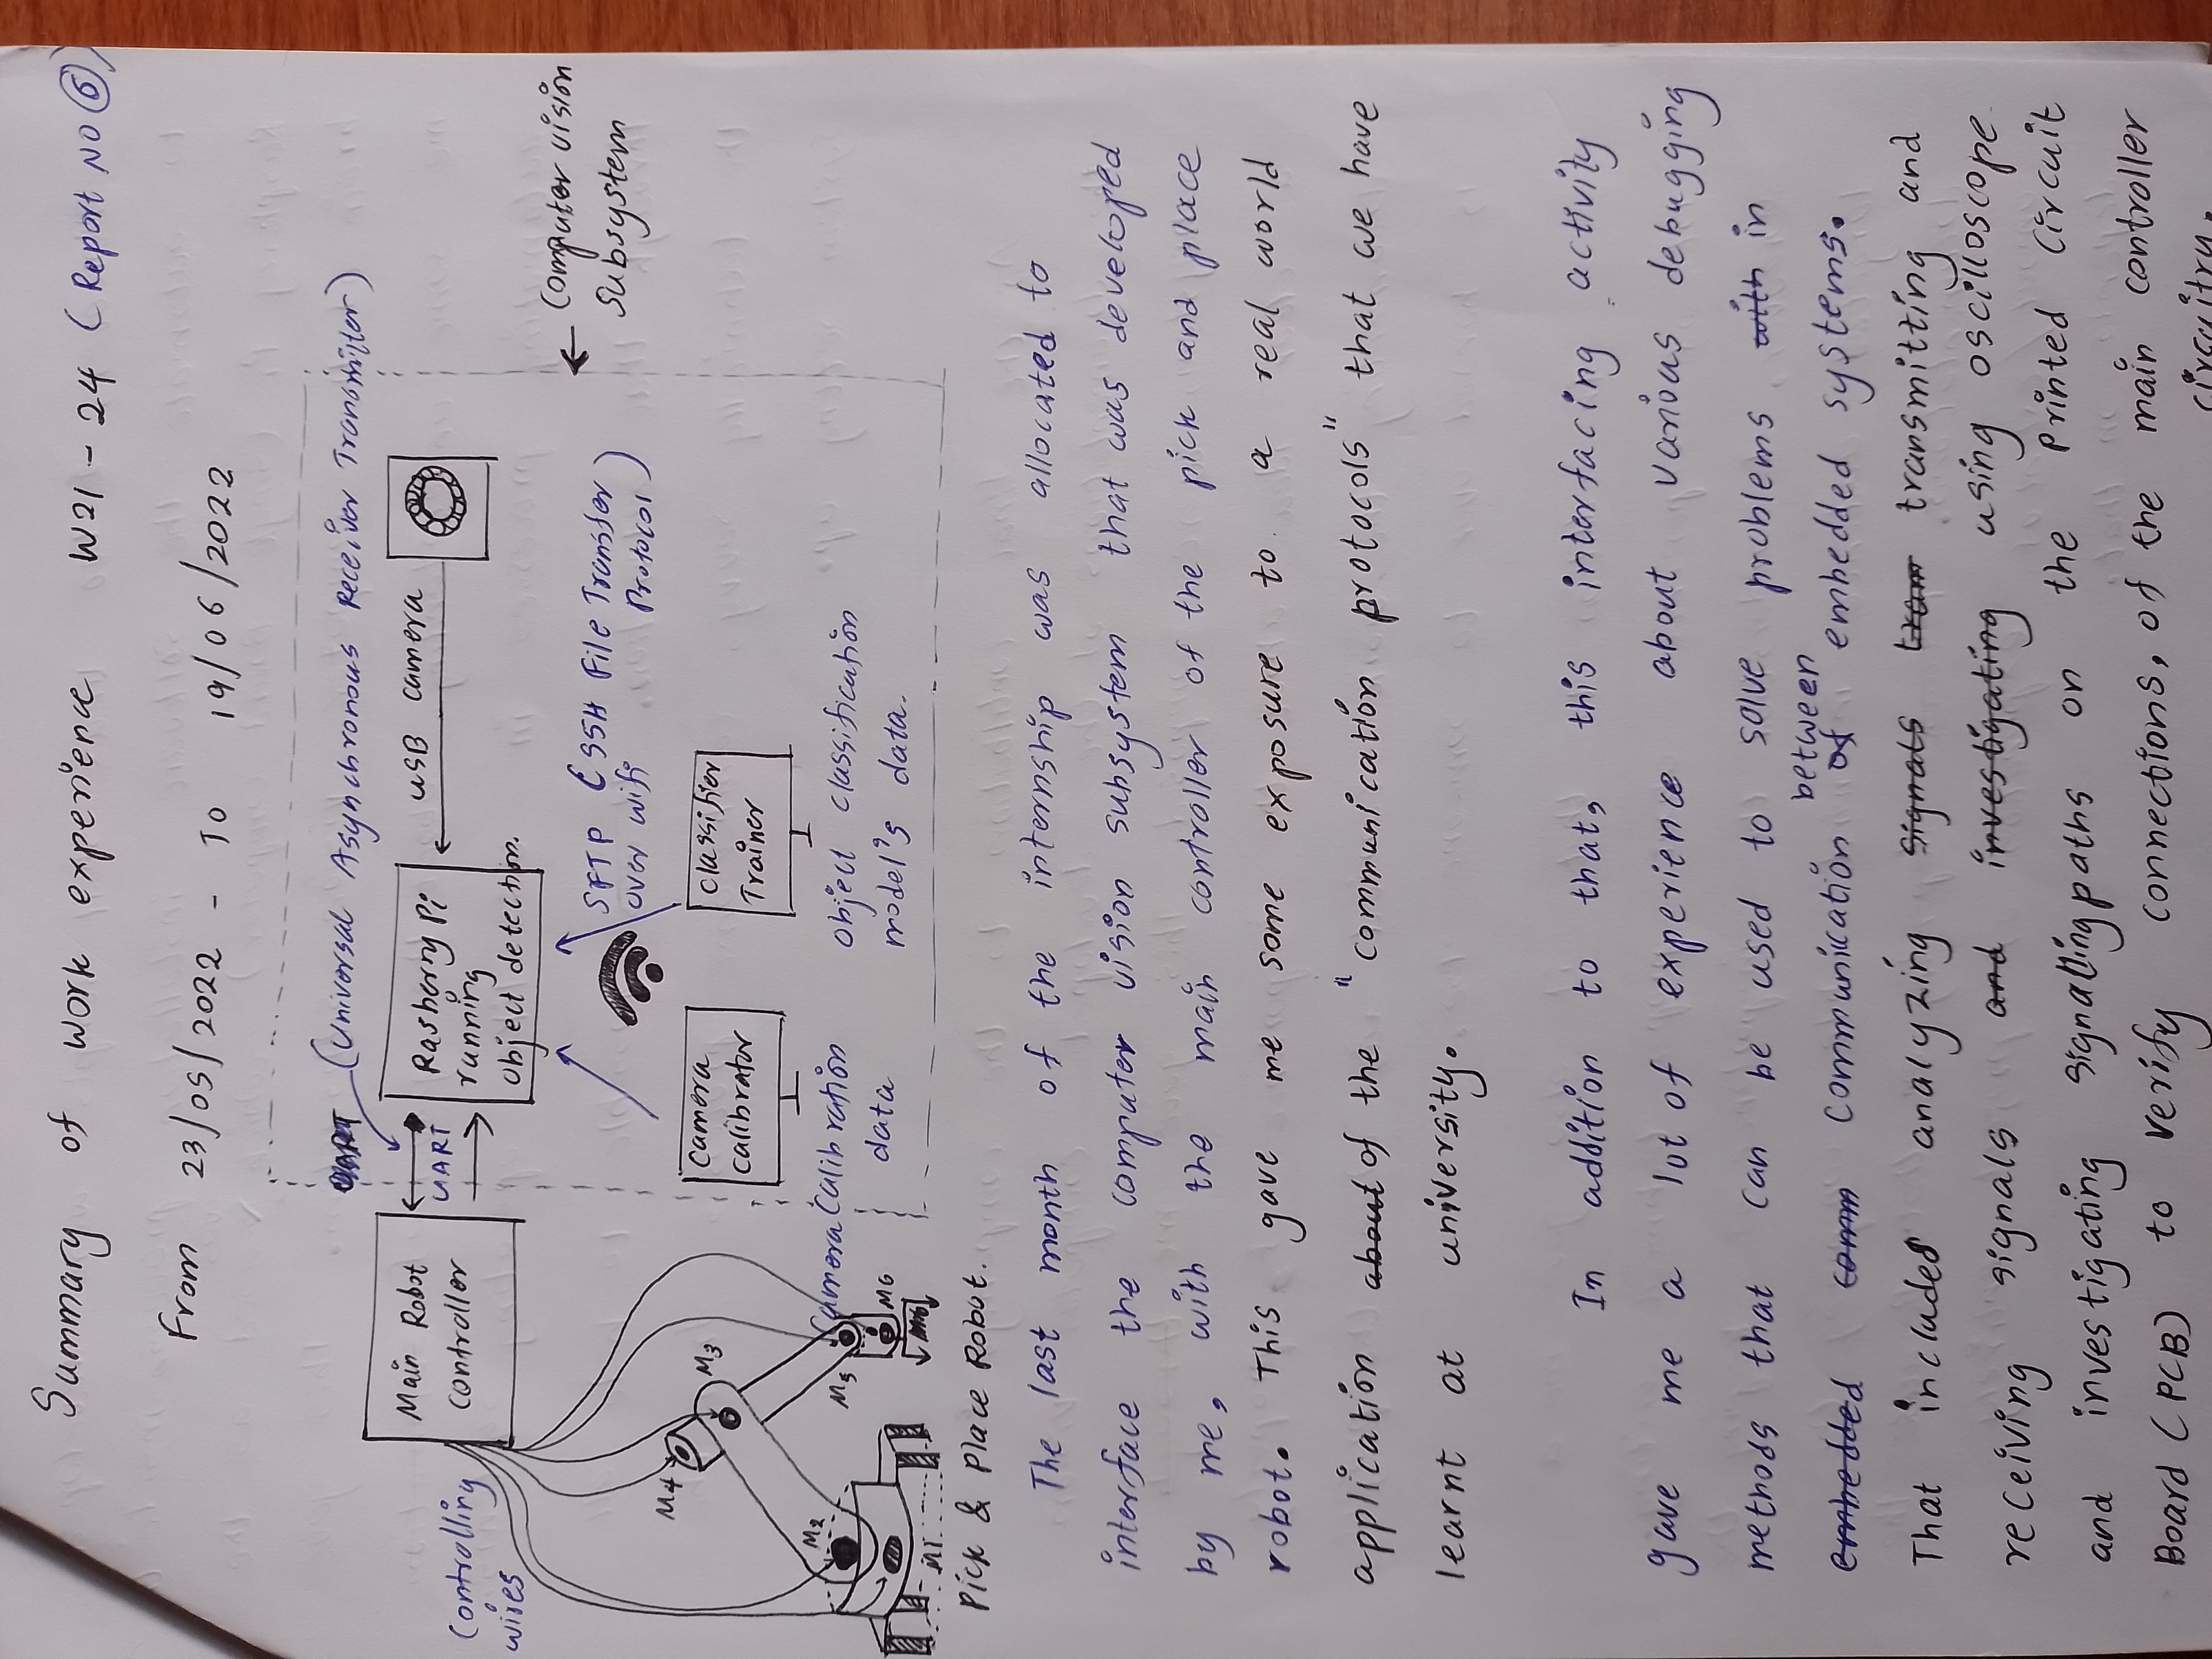 Summary of work experience W21 - 24 (Report NO 6)
From 23/05/2022 - To 19/06/2022
UART (Universal Asynchronous Receiver Transmitter)
Main Robot
controller
UART
Rasberry Pi
running
object detection.
USB camera
Controlling
wires
Computer vision
Subsystem
SFTP (SSH File Transfer
over wifi Protocol)
M4
M3
camera
calibrator
classifier
Trainer
M2
M5
M6
M1
Camera Calibration
data
object classification
model's data.
Pick & Place Robot.
The last month of the internship was allocated to
interface the computer vision subsystem that was developed
by me, with the main controller of the pick and place
robot. This gave me some exposure to a real world
application about of the "communication protocols" that we have
learnt at university.
In addition to that, this interfacing activity
gave me a lot of experience about various debugging
methods that can be used to solve problems with in
between
embedded comm communication of embedded systems.
That included analyzing signals tram transmitting and
receiving signals and investigating using oscilloscope
and investigating signalling paths on the Printed Circuit
Board (PCB) to verify connections, of the main controller
circuitry.